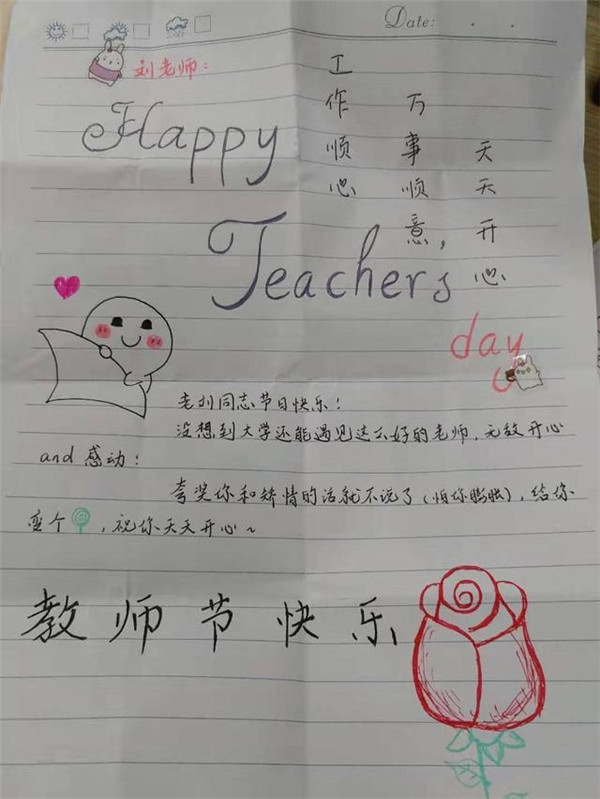 Date: . .
刘老师：
Happy
Teachers
day
工作顺心
万事顺意，
天天开心
老刘同志节日快乐！
没想到大学还能遇见这么好的老师，无敌开心
and 感动！
夸奖你和矫情的话就不说了（怕你膨胀），给你
变个，祝你天天开心~
教师节快乐